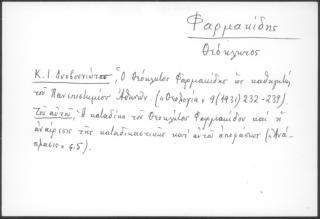 Φαρμακίδης
Θεόκλητος
Κ. Ι. Δυοβουνιώτου, Ὁ Θεόκλητος Φαρμακίδης ὡς καθηγητὴς
τοῦ Πανεπιστημίου Ἀθηνῶν. («Θεολογία» 9 (1931) 232-239).
Τοῦ αὐτοῦ, Ἡ καταδίκη τοῦ Θεοκλήτου Φαρμακίδου καὶ ἡ
ἀναίρεσις τῆς καταδικαστικῆς κατ' αὐτοῦ ἀποφάσεως («Ἀνά-
πλασις» 6.5).